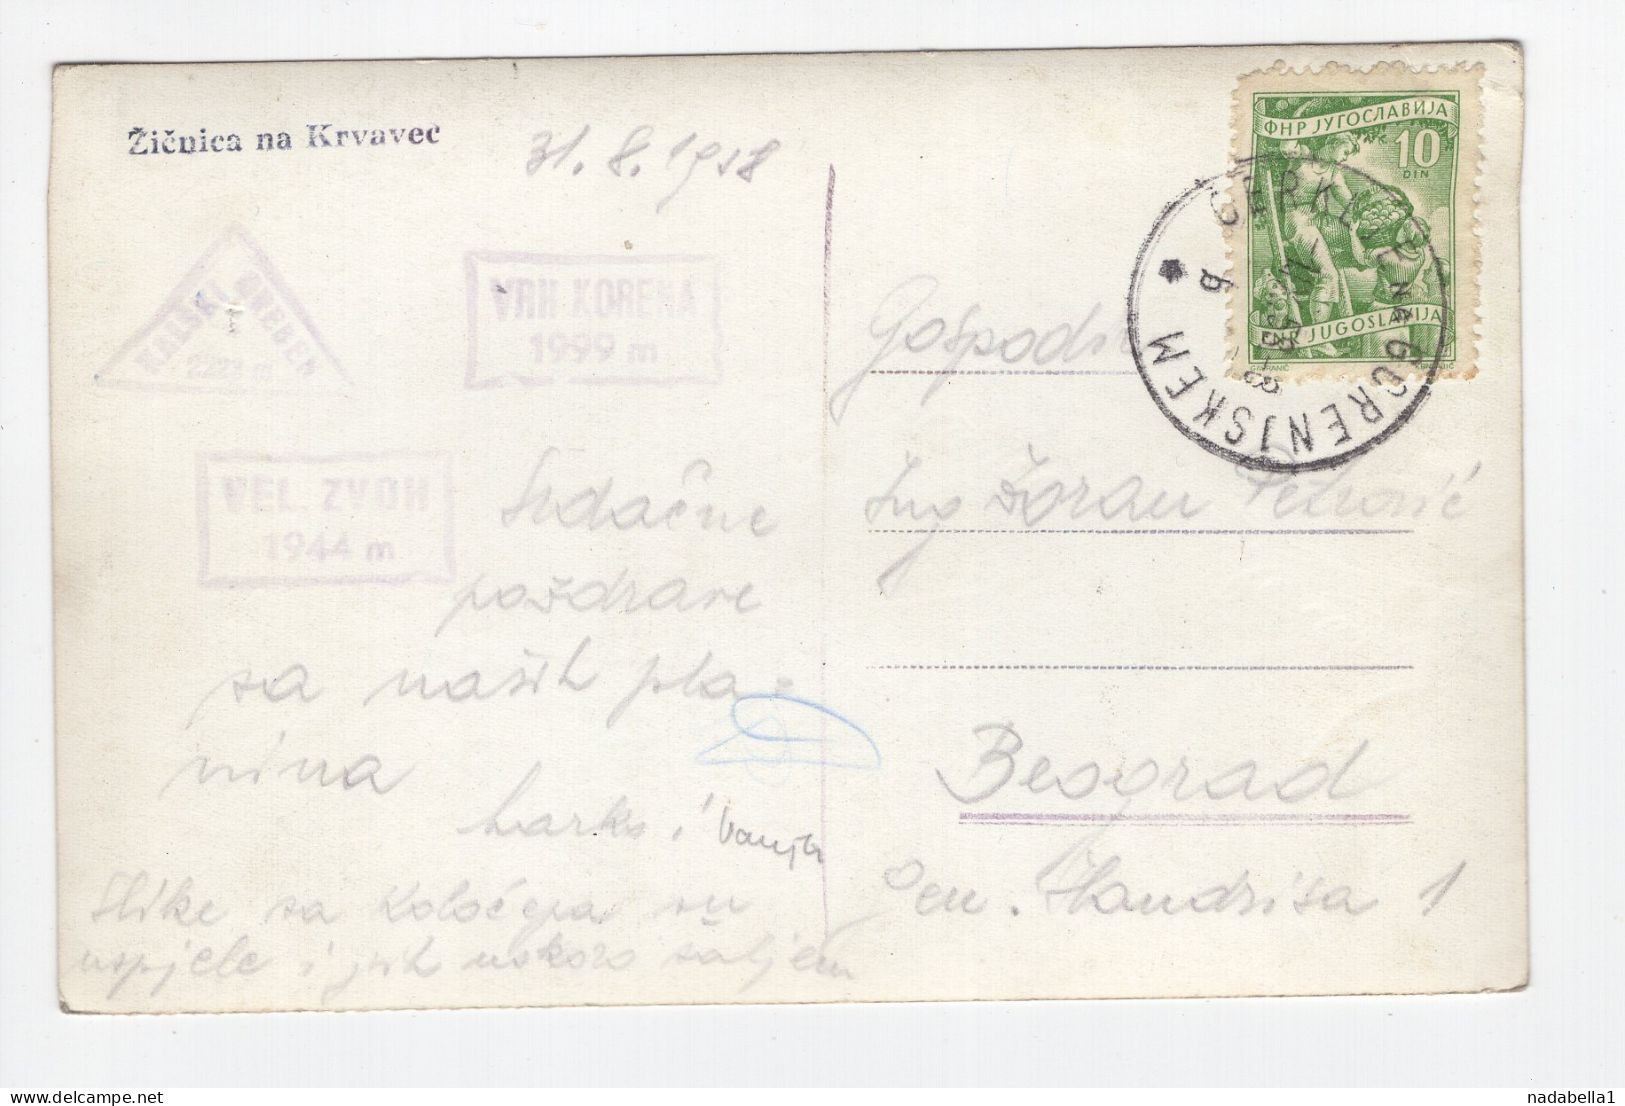 Žičnica na Krvavec
31. 8. 1958
KALŠKI GREBEN
2223 m
VRH KORENA
1999 m
VEL. ZVOH
1944 m
Srdačne
pozdrave
sa naših pla-
nina
Marko i Vanja
Slike sa Koločepa su
uspjele i jih uskoro šaljem
ФНР ЈУГОСЛАВИЈА
10
DIN
FNR JUGOSLAVIJA
CERKLJE NA GORENJSKEM
b
Gospodin
Ing Zoran Petrović
Beograd
Gen. Handriša 1
nadabella1